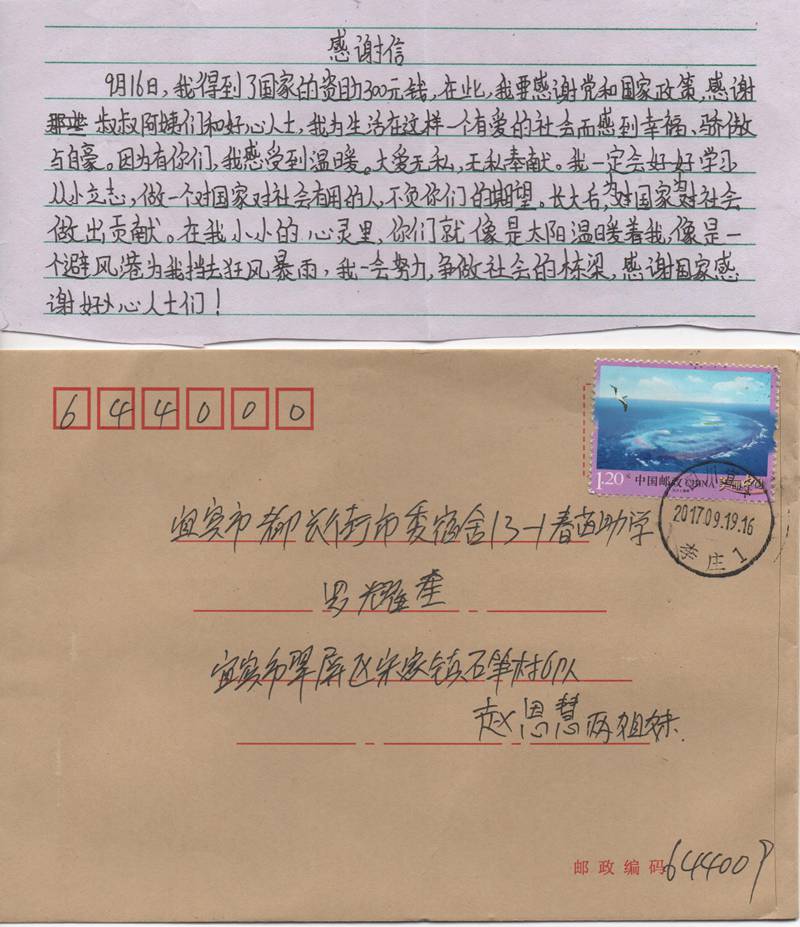 感谢信
9月16日,我得到了国家的资助300元钱,在此,我要感谢党和国家政策,感谢
那些叔叔阿姨们和好心人士,我为生活在这样一个有爱的社会而感到幸福、骄傲
与自豪。因为有你们,我感受到温暖。大爱无私,无私奉献。我一定会好好学习
从小立志,做一个对国家对社会有用的人,不负你们的期望。长大后,为对国家为对社会
做出贡献。在我小小的心灵里,你们就像是太阳温暖着我,像是一
个避风港为我挡去狂风暴雨,我一会努力,争做社会的栋梁,感谢国家感
谢好心人士们!
644000
1.20元 中国邮政 CHINA
2017.09.19.16
李庄1
宜宾市都长街市委宿舍13-1春苗助学
罗耀奎
宜宾市翠屏区宋家镇石笋村6队
赵恩慧两姐妹.
邮政编码 644009